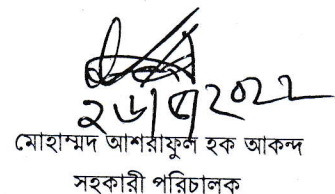 ২৬/৫/২০২২
মোহাম্মদ আশরাফুল হক আকন্দ
সহকারী পরিচালক